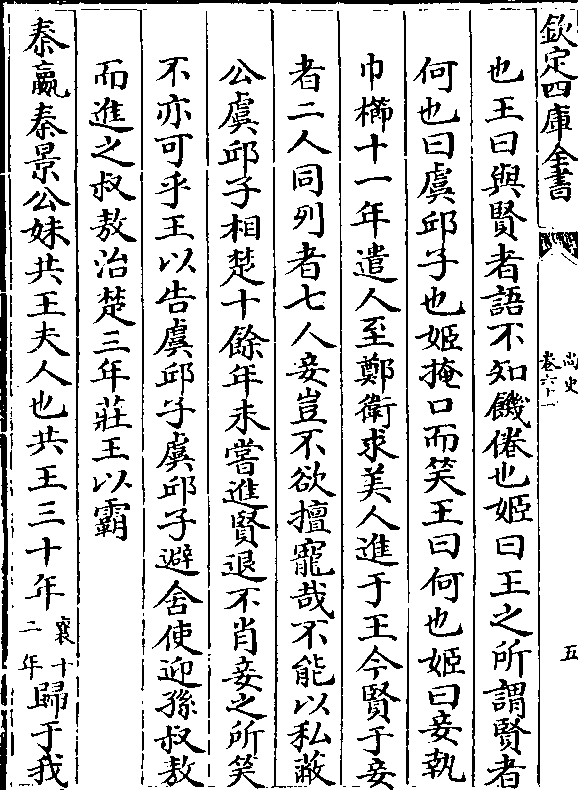 欽定四庫全書
尚史
卷六十一
五
也王曰與賢者語不知饑倦也姬曰王之所謂賢者
何也曰虞邱子也姬掩口而笑王曰何也姬曰妾執
巾櫛十一年遣人至鄭衛求美人進于王今賢于妾
者二人同列者七人妾豈不欲擅寵哉不能以私蔽
公虞邱子相楚十餘年未嘗進賢退不肖妾之所笑
不亦可乎王以告虞邱子虞邱子避舍使迎孫叔敖
而進之叔敖治楚三年莊王以霸
秦嬴秦景公妹共王夫人也共王三十年襄十二年歸于我